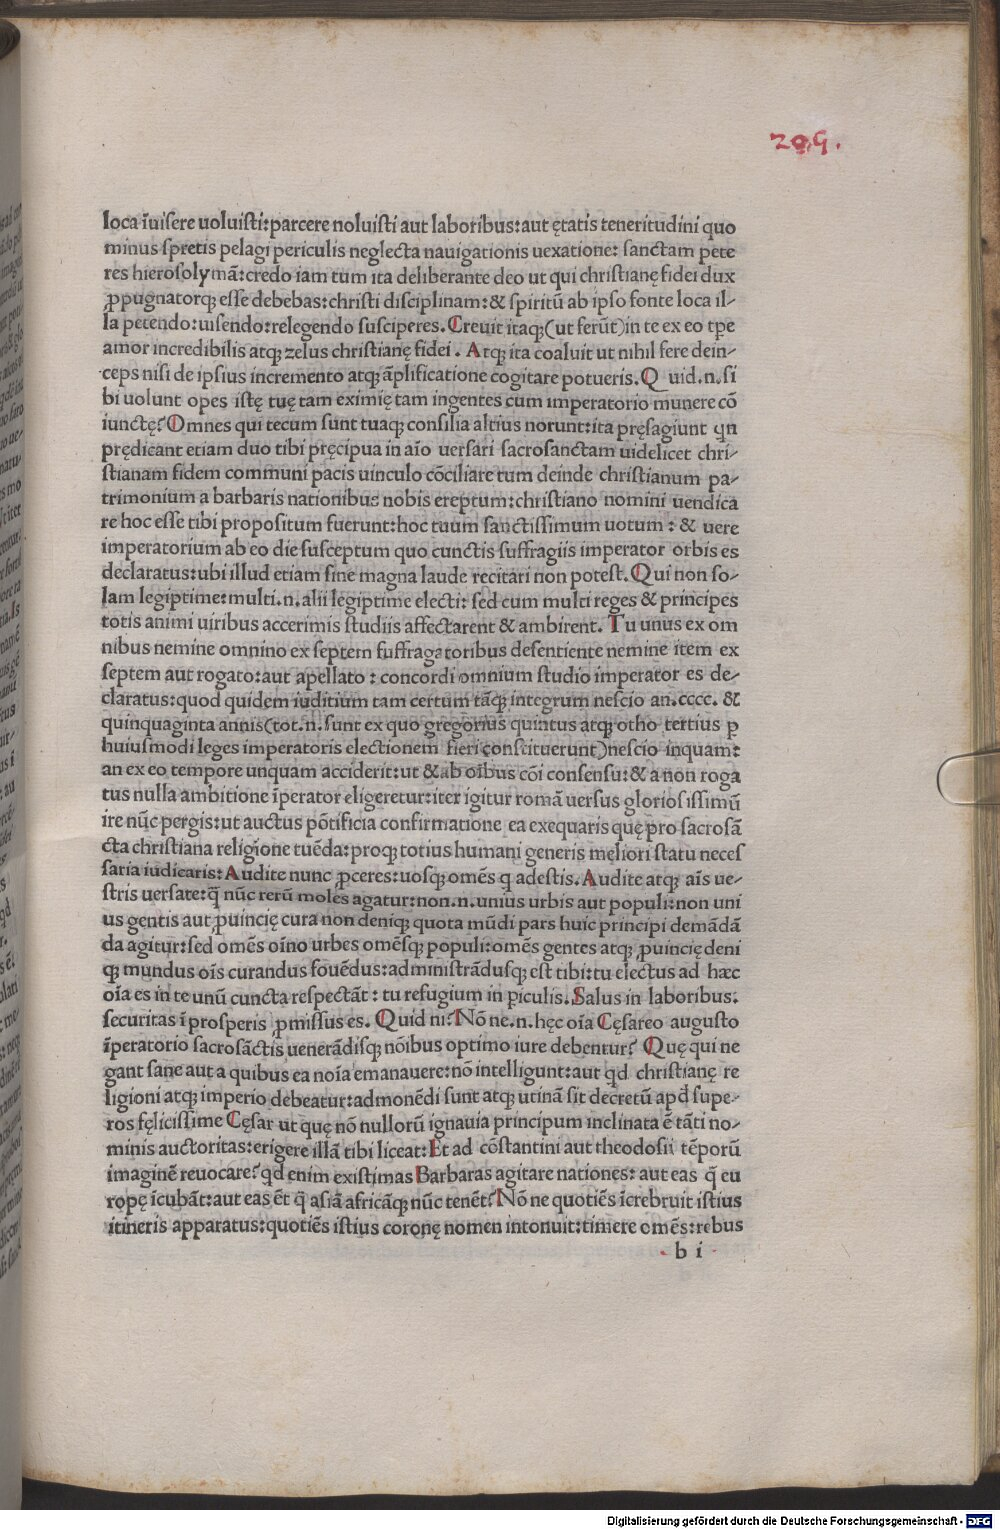 209.
loca ĩuisere uoluisti:parcere noluisti aut laboribus:aut ętatis teneritudini quo
minus spretis pelagi periculis neglecta nauigationis uexatione: sanctam pete
res hierosolymã:credo iam tum ita deliberante deo ut qui christianę fidei dux
ꝓpugnatorqꝫ esse debebas:christi disciplinam:& spiritũ ab ipso fonte loca il⸗
la petendo:uisendo:relegendo susciperes. Creuit itaqꝫ(ut ferũt)in te ex eo tp̃e
amor incredibilis atqꝫ zelus christianę fidei. Atqꝫ ita coaluit ut nihil fere dein⸗
ceps nisi de ipsius incremento atqꝫ ãplificatione cogitare potueris. Quid.n.si
bi uolunt opes istę tuę tam eximię tam ingentes cum imperatorio munere cõ
iunctę? Omnes qui tecum sunt tuaqꝫ consilia altius norunt:ita pręsagiunt qn̄
prędicant etiam duo tibi pręcipua in aĩo uersari sacrosanctam uidelicet chri⸗
stianam fidem communi pacis uinculo cõciliare tum deinde christianum pa⸗
trimonium a barbaris nationibus nobis ereptum:christiano nomini uendica
re hoc esse tibi propositum fuerunt:hoc tuum sanctissimum uotum: & uere
imperatorium ab eo die susceptum quo cunctis suffragiis imperator orbis es
declaratus:ubi illud etiam sine magna laude recitari non potest. Qui non so⸗
lam legiptime:multi.n.alii legiptime electi: sed cum multi reges & principes
totis animi uiribus accerimis studiis affectarent & ambirent. Tu unus ex om
nibus nemine omnino ex septem suffragatoribus desentiente nemine item ex
septem aut rogato:aut apellato: concordi omnium studio imperator es de⸗
claratus:quod quidem iuditium tam certum tãqꝫ integrum nescio an.cccc. &
quinquaginta annis(tot.n.sunt ex quo gregorius quintus atqꝫ otho tertius ꝑ
huiusmodi leges imperatoris electionem fieri constituerunt)nescio inquam:
an ex eo tempore unquam acciderit:ut & ab oĩbus cõi consensu:& a non roga
tus nulla ambitione ĩperator eligeretur:iter igitur romã uersus gloriosissimũ
ire nũc pergis:ut auctus põtificia confirmatione ea exequaris quę pro sacrosã
cta christiana religione tuẽda:proqꝫ totius humani generis meliori statu neces
saria iudicaris: Audite nunc ꝓceres:uosqꝫ omẽs q adestis. Audite atqꝫ aĩs ue⸗
stris uersate:q̃ nũc rerũ moles agatur:non.n.unius urbis aut populi:non uni
us gentis aut ꝓuincię cura non deniqꝫ quota mũdi pars huic principi demãdã
da agitur:sed omẽs oĩno urbes omẽsqꝫ populi:omẽs gentes atqꝫ ꝓuincię deni
qꝫ mundus oĩs curandus fouẽdus:administrãdusqꝫ est tibi:tu electus ad hæc
oĩa es in te unũ cuncta respectãt: tu refugium in ꝑiculis. Salus in laboribus:
securitas ĩ prosperis ꝓmissus es. Quid ni? Nõ ne.n.hęc oĩa Cęsareo augusto
ĩperatorio sacrosãctis uenerãdisqꝫ nõibus optimo iure debentur? Quę qui ne
gant sane aut a quibus ea noĩa emanauere:nõ intelligunt:aut qd christianę re
ligioni atqꝫ imperio debeatur:admonẽdi sunt atqꝫ utinã sit decretũ apd supe⸗
ros fęlicissime Cęsar ut quę nõ nullorũ ignauia principum inclinata ẽ tãti no⸗
minis auctoritas:erigere illã tibi liceat: Et ad cõstantini aut theodosii tẽporũ
imaginẽ reuocare? qd enim existimas Barbaras agitare nationes: aut eas q̃ eu
ropę ĩcubãt:aut eas ẽt q̃ asiã africãqꝫ nũc tenẽt? Nõ ne quotiẽs ĩcrebruit istius
itineris apparatus:quotiẽs istius coronę nomen intonuit:timere omẽs:rebus
b i
Digitalisierung gefördert durch die Deutsche Forschungsgemeinschaft - DFG